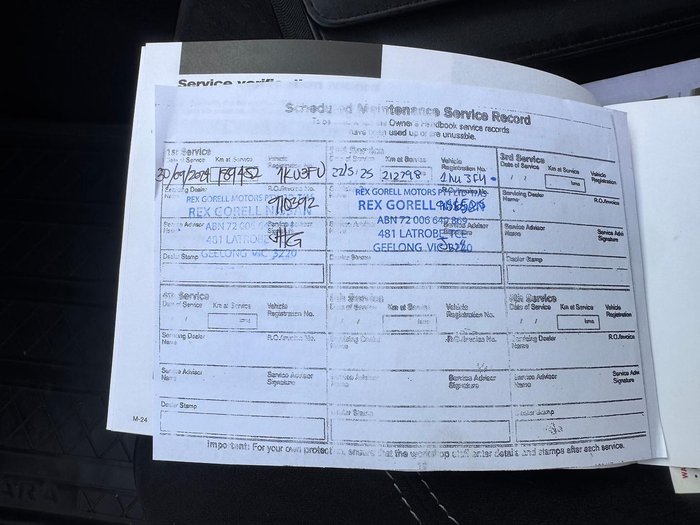 Service verification
Scheduled Maintenance Service Record
Owner's Handbook service records
have been used up or are unusable.
1st Service
Date of Service Km at Service Vehicle Registration No.
30/09/2024
Servicing Dealer Name R.O./Invoice No.
REX GORELL MOTORS
REX GORELL
910392
Service Advisor Name
ABN 72 006
481 LATROBE
GEELONG VIC 3220
Dealer Stamp
Service
Km at Service Vehicle Registration No.
22/5/25 212798
R.O./Invoice No.
REX GORELL MOTORS
REX GORELL
Service Advisor Signature
ABN 72 006
481 LATROBE TCE
GEELONG VIC 3220
Dealer Stamp
3rd Service
Date of Service Km at Service Vehicle Registration
/ / kms
Servicing Dealer Name R.O./Invoice
Service Advisor Name Service Advi Signature
Dealer Stamp
4th Service
Date of Service Km at Service Vehicle Registration No.
/ / kms
Servicing Dealer Name R.O./Invoice No.
Service Advisor Name Service Advisor Signature
Dealer Stamp
Service
Date of Service Km at Service Vehicle Registration No.
/ / kms
Servicing Dealer Name R.O./Invoice No.
Service Advisor Name Service Advisor Signature
Dealer Stamp
Service
Date of Service Km at Service Vehicle Registration No.
/ / kms
Servicing Dealer Name R.O./Invoice
Service Advisor Name Service Advisor Signature
Dealer Stamp
M-24
Important: For your own protection, ensure that the workshop staff enter details and stamps after each service.